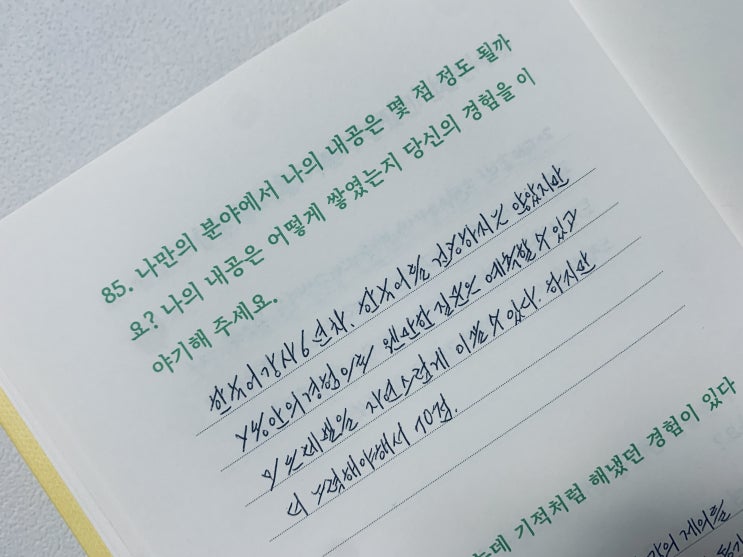 85. 나만의 분야에서 나의 내공은 몇 점 정도 될까
요? 나의 내공은 어떻게 쌓였는지 당신의 경험을 이
야기해 주세요.
한국어강사 6년차. 한국어를 전공하지는 않았지만
그동안의 경험으로 웬만한 질문은 예측할 수 있고
또는 수업을 자연스럽게 이끌 수 있다. 하지만
더 노력해야해서 70점.
는데 기적처럼 해냈던 경험이 있다
의 제의를